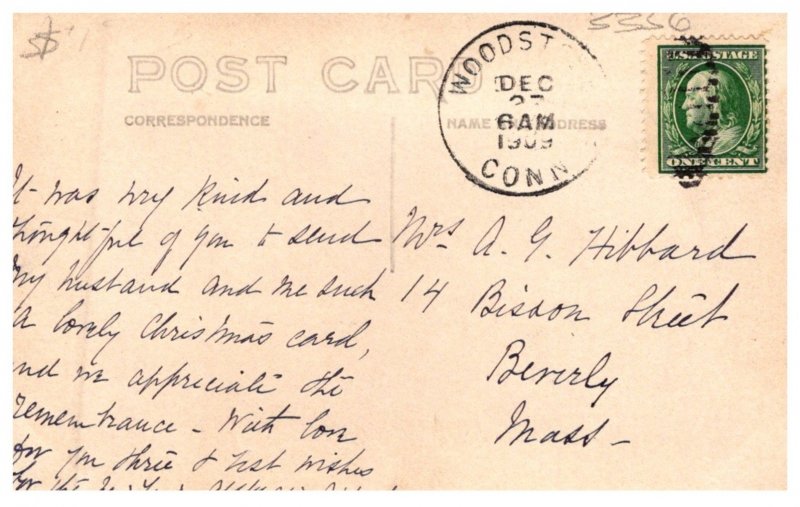 $
5556
POST CARD
CORRESPONDENCE
NAME AND ADDRESS
WOODST
DEC
27
6 AM
1909
CONN
U.S. POSTAGE
ONE CENT
It was very kind and
thoughtful of you to send
my husband and me such
a lovely Christmas card,
and we appreciate the
remembrance - With love
for you three & best wishes
for the New Year
Mrs A. G. Hibbard
14 Bisson Street
Beverly
Mass -